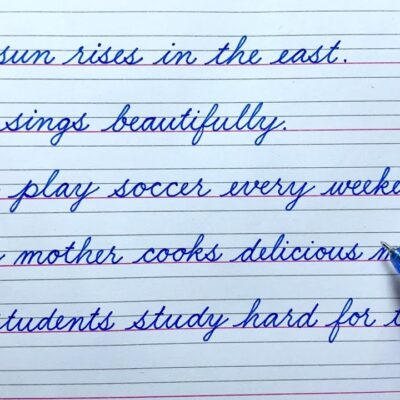 sun rises in the east.
sings beautifully.
play soccer every weeke
mother cooks delicious
students study hard for t